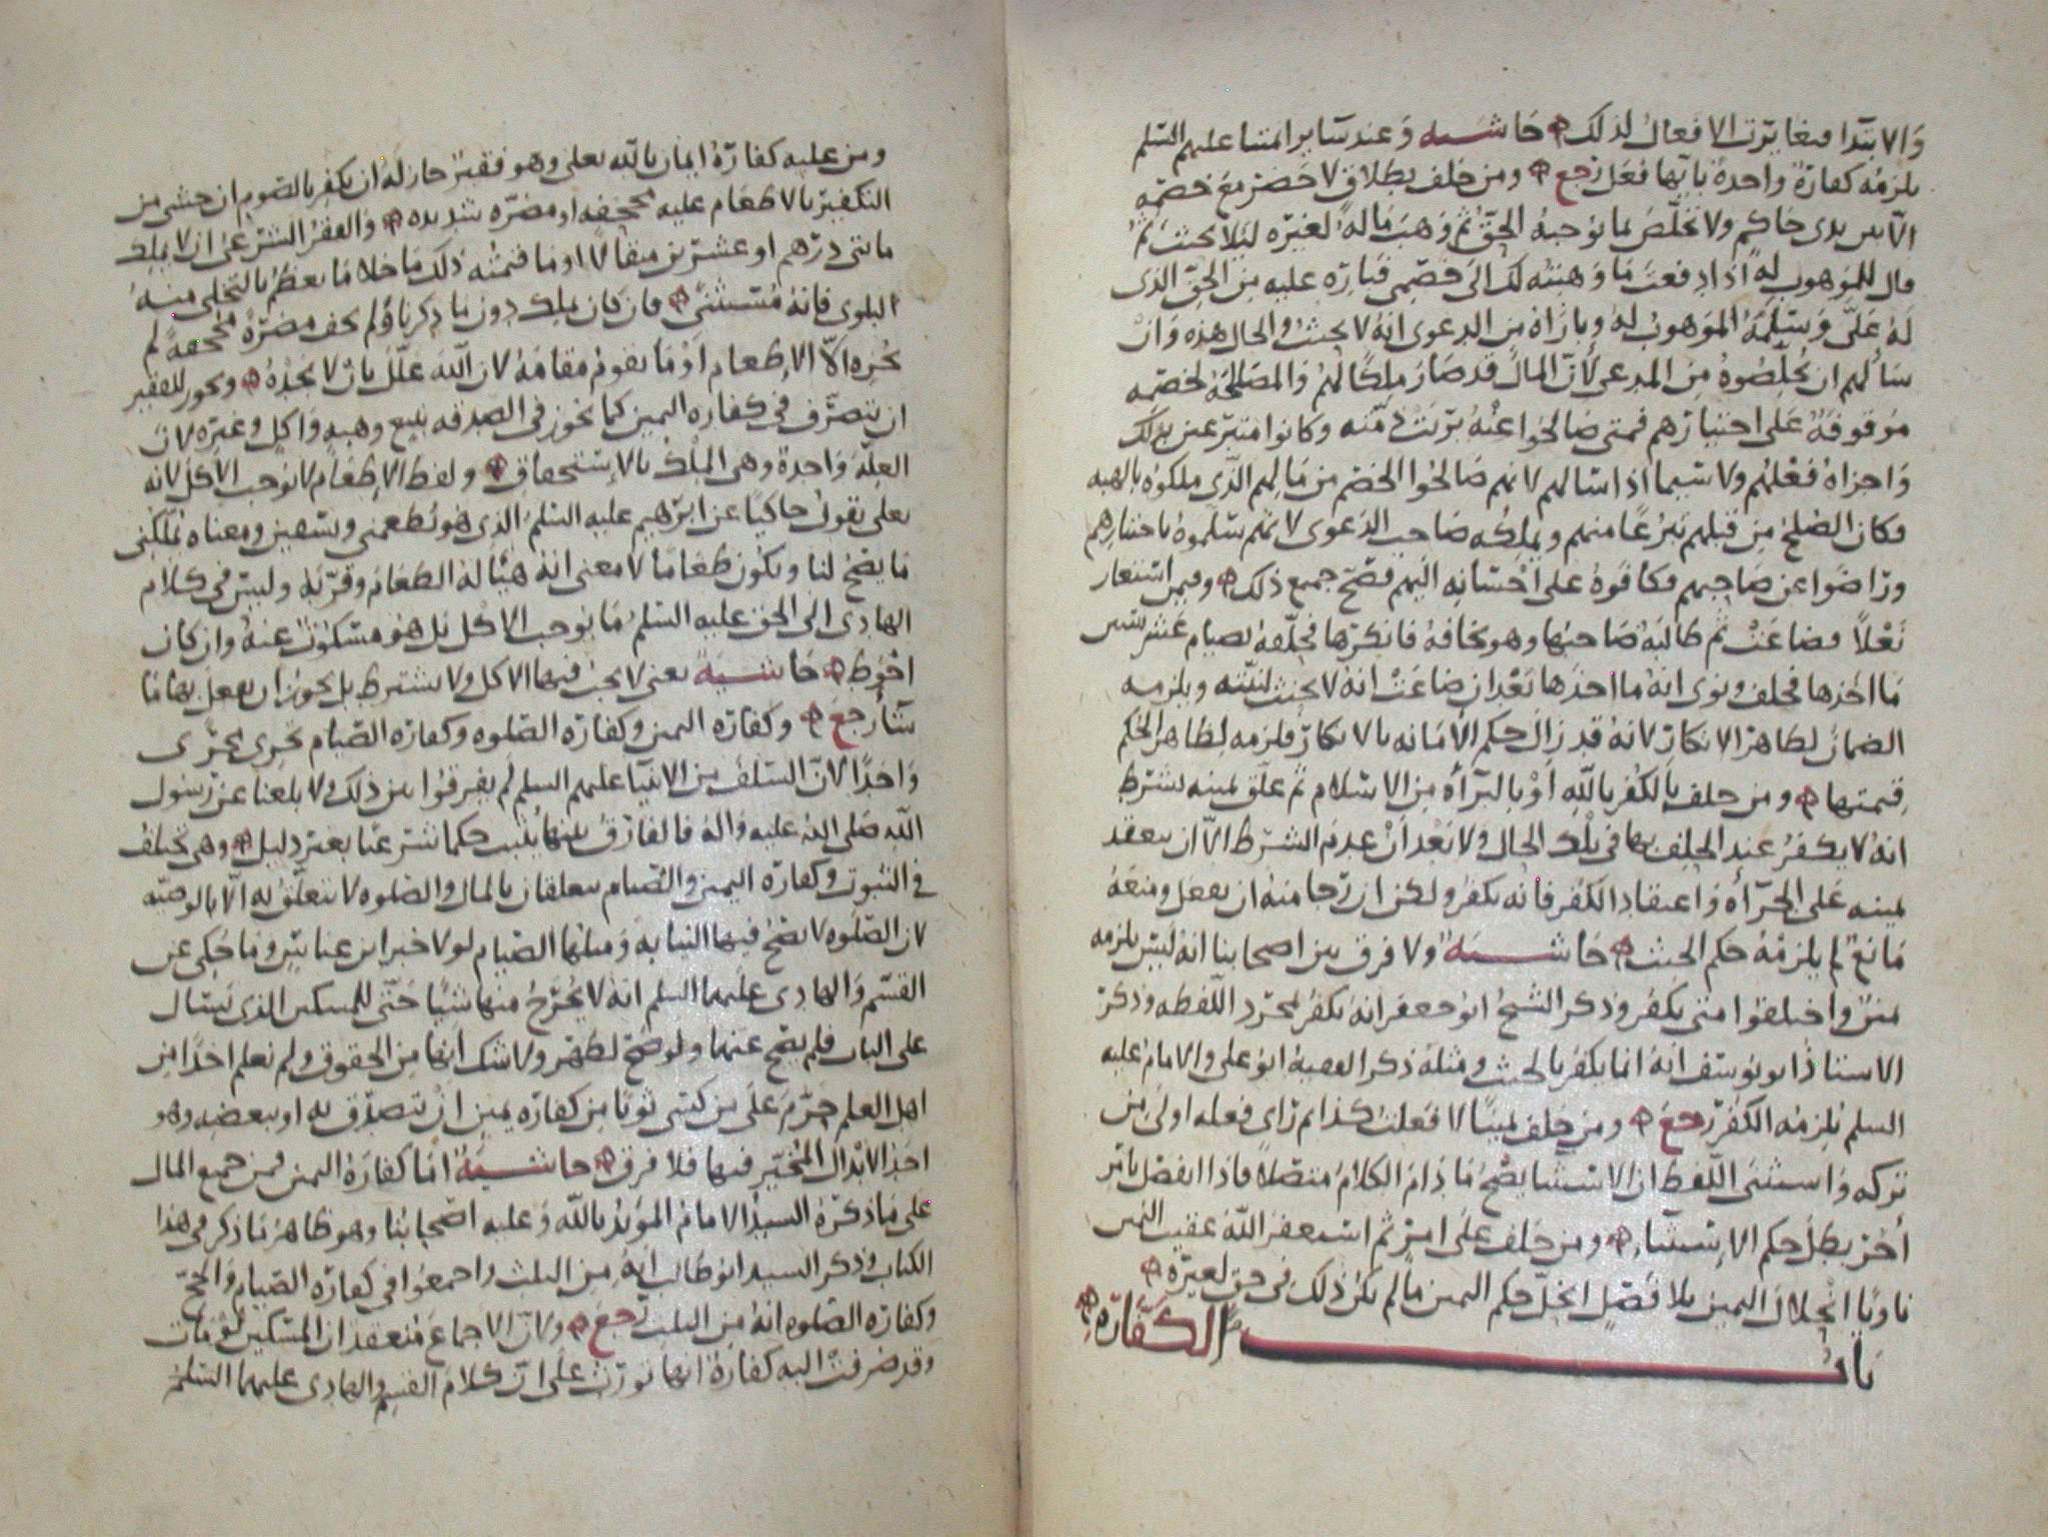 والابتدا فتغايرت الافعال لذلك حاشيه وعند ساير ايمتنا عليهم السلم
يلزمه كفارة واحدة بايها فعل رجع ومن حلف بطلاق لا حضر مع خصمه
الا بين يدى حاكم ولا تخلص بما يوجبه الحق ثم وهب ماله لغيره ليلا يحنث ثم
قال للموهوب له اذا دفعت ما وهبته لك الى خصمى فباره عليه من الحق الذى
له على وسلمه الموهوب له وباراه من الدعوى انه لا يحنث والحال هذه وان
سالهم ان يخلصوه من المدعى لان المال قد صار ملكا لهم والمصلحة لخصمه
موقوفة على اختيارهم فمتى صالحوا عنه بريت ذمته وكانوا متبرعين بذلك
واجزاه فعلهم ولا سيما اذا سالهم لانهم صالحوا الخصم من مالهم الذى ملكوه بالهبه
فكان الصلح من قبلهم تبرعا منهم ويملكه صاحب الدعوى لانهم سلموه باختيارهم
وتراضوا عن صاحبهم فكافوه على احسانه اليهم فصح جميع ذلك وفيمن استعار
نعلا فضاعت ثم طالبه صاحبها وهو يخافه فانكرها فحلفه بصيام عشر سنين
ما اخذها فحلف ونوى انه ما اخذها بعد ان ضاعت انه لا يحنث لنيته ويلزمه
الضمان لظاهر الانكار لانه قد زال حكم الامانه بالانكار فلزمه لظاهر الحكم
قيمتها ومن حلف بالكفر بالله او بالبرأة من الاسلام ثم علق يمينه بشرط
انه لا يكفر عند الحلف بها فى تلك الحال ولا بعد ان عدم الشرط الا ان يعقد
يمينه على الجرأة واعتقاد الكفر فانه يكفر ولكن ان رجا منه ان يفعل ومنعه
مانع لم يلزمه حكم الحنث حاشيه ولا فرق بين اصحابنا انه ليس يلزمه
يمين واختلفوا متى يكفر وذكر الشيخ ابو جعفر انه يكفر بمجرد اللفظه وذكر
الاستاذ ابو يوسف انه انما يكفر بالحنث ومثله ذكر الفقيه ابو على والامام عليه
السلم يلزمه الكفر رجع ومن حلف يمينا لا فعلت كذا ثم راى فعله اولى من
تركه واستثنى اللفظ ان الاستثنا يصح ما دام الكلام متصلا فاذا انفصل بامر
اخر بطل حكم الاستثناء ومن حلف على امر ثم استغفر الله عقيب اليمين
ناويا انحلال اليمين بلا فصل انحل حكم اليمين ما لم يكن ذلك فى حق لغيره
باب الكفارة
ومن عليه كفارة ايمان بالله تعلى وهو فقير جاز له ان يكفر بالصوم ان خشى من
التكفير بالاطعام عليه مجحفه او مضره شديده والفقر الشرعى ان لا يملك
مايتى درهم او عشرين مثقالا او ما قيمته ذلك ما خلا ما يعظم بالتخلى منه
البلوى فانه مستثنى فان كان يملك دون ما ذكرنا ولم يخف مضرة مجحفة لم
يجزه الا الاطعام او ما يقوم مقامه لان الله علل بان لا يجده ويجوز للفقير
ان يتصرف فى كفاره اليمين كما يجوز فى الصدقه ببيع وهبه واكل وغيره لان
العلة واحدة وهى الملك بالاستحقاق ولفظ الاطعام لا يوجب الاكل لانه
تعلى يقول حاكيا عن ابرهيم عليه السلم الذى هو يطعمنى ويسقين ومعناه يملكنى
ما يصح لنا ويكون طعاما لا معنى انه هيأ له الطعام وقربه وليس فى كلام
الهادى الى الحق عليه السلم ما يوجب الاكل بل هو مسكوت عنه وان كان
احوط حاشية يعنى لا يجب فيها الاكل ولا يشترط بل يجوز ان يفعل بها ما
شأ رجع وكفاره اليمين وكفاره الصلوه وكفاره الصيام تجرى مجرى
واحدا لان السلف من الانبيا عليهم السلم لم يفرقوا بين ذلك ولا بلغنا عن رسول
الله صلى الله عليه واله فالفارق بينها يثبت حكما شرعيا بغير دليل وهى تختلف
فى الثبوت وكفارة اليمين والصيام يتعلقان بالمال والصلوه لا تتعلق به الا بالوصيه
لان الصلوه لا تصح فيها النيابه ومثلها الصيام لولا خبر ابن عباس وما حكى عن
القسم والهادى عليهما السلم انه لا يخرج منها شيا حتى للمسكين الذى يسال
على الباب فلم يصح عنهما ولو صح لظهر ولا شك انها من الحقوق ولم نعلم احدا من
اهل العلم حرم على من كسى ثوبا من كفاره يمين ان يتصدق به او ببعضه وهو
احد الابدال المخير فيها فلا فرق حاشية اما كفارة اليمين فمن جميع المال
على ما ذكره السيد الامام المؤيد بالله وعليه اصحابنا وهو ظاهر ما ذكر فى هذا
الكتاب وذكر السيد ابو طالب انه من الثلث واجمعوا فى كفارة الصيام والحج
وكفاره الصلوه انه من الثلث رجع ولان الاجماع منعقد ان المسكين لو مات
وقد صرفت اليه كفارة انها تورث على ان كلام القسم والهادى عليهما السلم